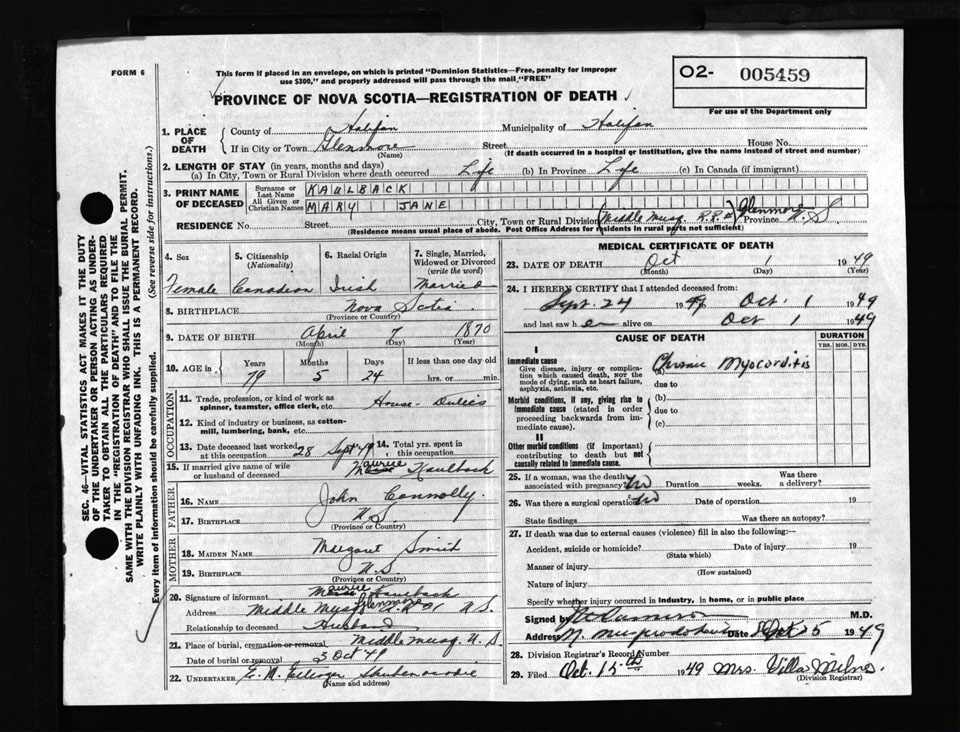 FORM 6
This form if placed in an envelope, on which is printed "Dominion Statistics—Free, penalty for improper
use $300," and properly addressed will pass through the mail, "FREE"
O2- 005459
For use of the Department only
PROVINCE OF NOVA SCOTIA—REGISTRATION OF DEATH
SEC. 46—VITAL STATISTICS ACT MAKES IT THE DUTY
OF THE UNDERTAKER OR PERSON ACTING AS UNDER-
TAKER TO OBTAIN ALL THE PARTICULARS REQUIRED
IN THE "REGISTRATION OF DEATH" AND TO FILE THE
SAME WITH THE DIVISION REGISTRAR WHO SHALL ISSUE THE BURIAL PERMIT.
WRITE PLAINLY WITH UNFADING INK. THIS IS A PERMANENT RECORD.
Every item of information should be carefully supplied. (See reverse side for instructions.)
1. PLACE OF DEATH
County of Halifax Municipality of Halifax
If in City or Town Glenmore Street House No.
(Name) (If death occurred in a hospital or institution, give the name instead of street and number)
2. LENGTH OF STAY (in years, months and days)
(a) In City, Town or Rural Division where death occurred Life (b) In Province Life (c) In Canada (if immigrant)
3. PRINT NAME OF DECEASED
Surname or Last Name KAULBACK
All Given or Christian Names MARY JANE
RESIDENCE No. Street City, Town or Rural Division (Middle Musq. R.R. Glenmore) Province N.S
(Residence means usual place of abode. Post Office Address for residents in rural parts not sufficient)
4. Sex Female
5. Citizenship (Nationality) Canadian
6. Racial Origin Irish
7. Single, Married, Widowed or Divorced (write the word) Married
8. BIRTHPLACE Nova Scotia
(Province or Country)
9. DATE OF BIRTH April 7 1870
(Month) (Day) (Year)
10. AGE in Years Months Days If less than one day old
79 5 24 hrs. or min.
OCCUPATION
11. Trade, profession, or kind of work as
spinner, teamster, office clerk, etc. House-Duties
12. Kind of industry or business, as cotton-
mill, lumbering, bank, etc.
13. Date deceased last worked at this occupation 28 Sept 49
14. Total yrs. spent in this occupation
15. If married give name of wife
or husband of deceased Maurice Kaulback
FATHER
16. NAME John Connolly
17. BIRTHPLACE N.S
(Province or Country)
MOTHER
18. MAIDEN NAME Margaret Smith
19. BIRTHPLACE N.S
(Province or Country)
20. Signature of informant Maurice Kaulback
Address Middle Musq Glenmore N.S.
Relationship to deceased Husband
21. Place of burial, cremation or removal Middle Musq. N.S
Date of burial or removal 3 Oct 49
22. UNDERTAKER Shubenacadie
(Name and address)
MEDICAL CERTIFICATE OF DEATH
23. DATE OF DEATH Oct 1 1949
(Month) (Day) (Year)
24. I HEREBY CERTIFY that I attended deceased from:
Sept. 24 1949 Oct. 1 1949
and last saw her alive on Oct 1 1949
CAUSE OF DEATH
DURATION
YRS. MOS. DYS.
I
Immediate cause
Give disease, injury or complica-
tion which caused death, not the
mode of dying, such as heart failure,
asphyxia, asthenia, etc.
(a) Chronic Myocarditis
due to
Morbid conditions, if any, giving rise to
immediate cause (stated in order
proceeding backwards from im-
mediate cause).
(b)
due to
(c)
II
Other morbid conditions (if important)
contributing to death but not
causally related to immediate cause.
25. If a woman, was the death
associated with pregnancy? no Duration weeks. Was there a delivery?
26. Was there a surgical operation? no Date of operation 19
State findings Was there an autopsy?
27. If death was due to external causes (violence) fill in also the following:—
Accident, suicide or homicide? Date of injury 19
(State which)
Manner of injury
(How sustained)
Nature of injury
Specify whether injury occurred in industry, in home, or in public place
Signed by M.D.
Address M. Musquodoboit Date 1949
28. Division Registrar's Record Number
29. Filed Oct. 15th 1949 Mrs. Villa Milne
(Division Registrar)